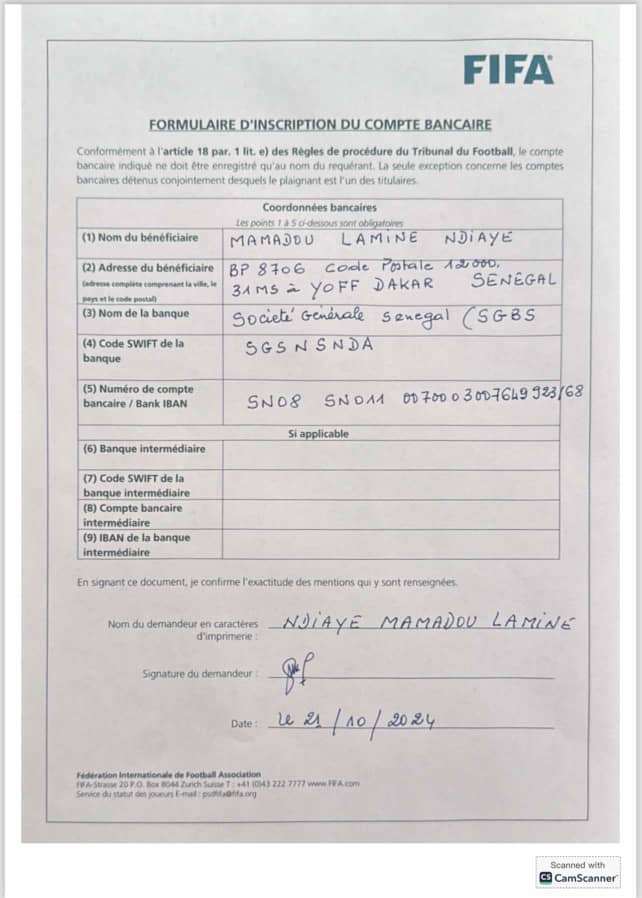 FIFA
FORMULAIRE D'INSCRIPTION DU COMPTE BANCAIRE
Conformément à l'article 18 par. 1 lit. e) des Règles de procédure du Tribunal du Football, le compte
bancaire indiqué ne doit être enregistré qu'au nom du requérant. La seule exception concerne les comptes
bancaires détenus conjointement desquels le plaignant est l'un des titulaires.
Coordonnées bancaires
Les points 1 à 5 ci-dessous sont obligatoires
(1) Nom du bénéficiaire MAMADOU LAMINE NDIAYE
(2) Adresse du bénéficiaire BP 8706 Code Postale 12000.
(adresse complète comprenant la ville, le pays et le code postal) 31MS à YOFF DAKAR SENEGAL
(3) Nom de la banque Societé Générale Senegal (SGBS
(4) Code SWIFT de la banque SGSNSNDA
(5) Numéro de compte bancaire / Bank IBAN SN08 SN011 0070003007649923/68
Si applicable
(6) Banque intermédiaire
(7) Code SWIFT de la
banque intermédiaire
(8) Compte bancaire
intermédiaire
(9) IBAN de la banque
intermédiaire
En signant ce document, je confirme l'exactitude des mentions qui y sont renseignées.
Nom du demandeur en caractères d'imprimerie : NDIAYE MAMADOU LAMINE
Signature du demandeur :
Date : le 21/10/2024
Fédération Internationale de Football Association
FIFA-Strasse 20 P.O. Box 8044 Zurich Suisse T : +41 (0)43 222 7777 www.FIFA.com
Service du statut des joueurs E-mail : psdfifa@fifa.org
Scanned with
CS CamScanner